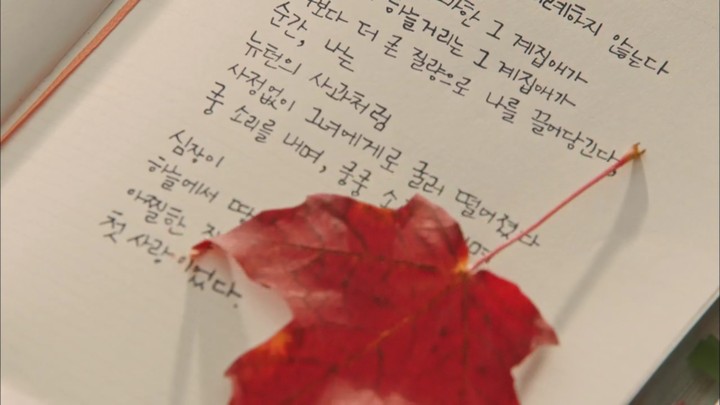 않는다
그 계집애가
하늘거리는 그 계집애가
더 큰 질량으로 나를 끌어당긴다
순간, 나는
뉴턴의 사과처럼
사정없이 그녀에게로 굴러 떨어졌다
쿵 소리를 내며, 쿵쿵
심장이
하늘에서
아찔한
첫 사랑이었다.